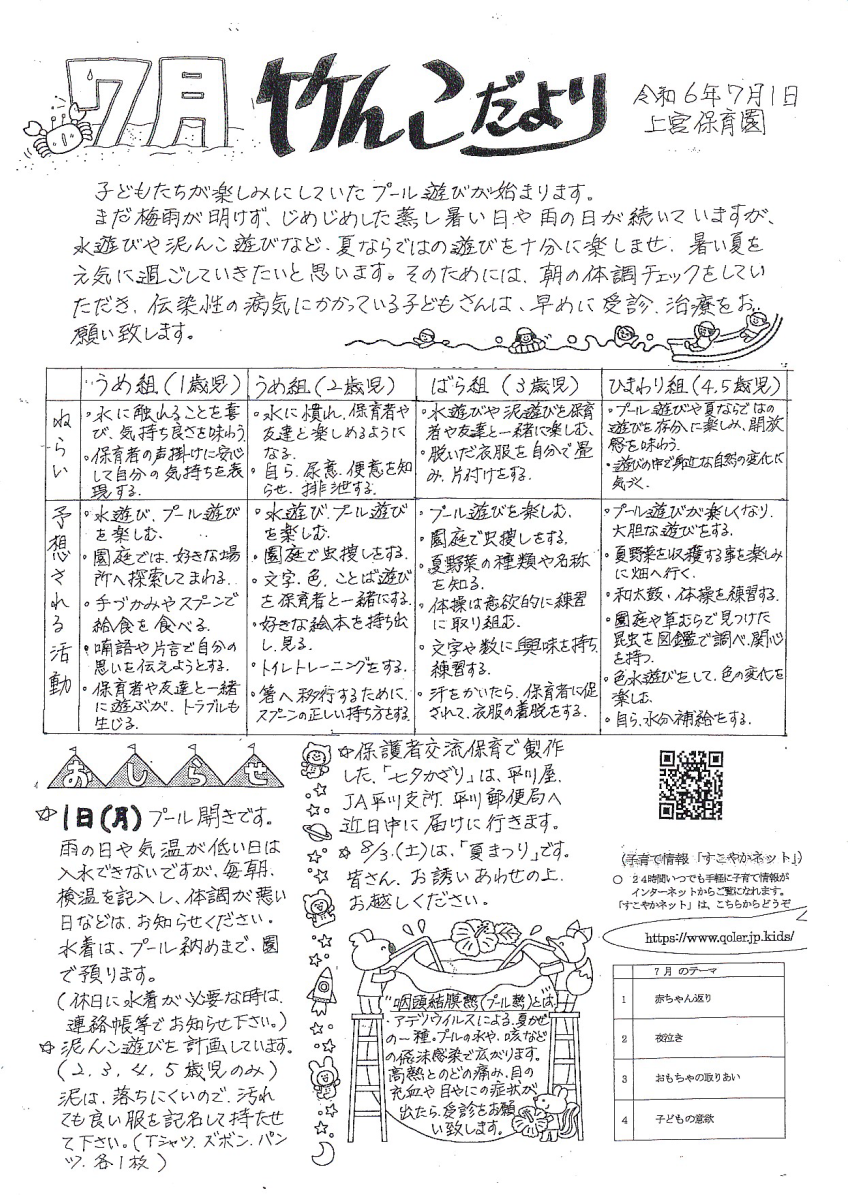 7月 竹んこだより
令和6年7月1日
上宮保育園
子どもたちが楽しみにしていたプール遊びが始まります。
まだ梅雨が明けず、じめじめした蒸し暑い日や雨の日が続いていますが、
水遊びや泥んこ遊びなど、夏ならではの遊びを十分に楽しませ、暑い夏を
元気に過ごしていきたいと思います。そのためには、朝の体調チェックをしてい
ただき、伝染性の病気にかかっている子どもさんは、早めに受診、治療をお
願い致します。
うめ組(1歳児)
うめ組(2歳児)
ばら組(3歳児)
ひまわり組(4,5歳児)
ねらい
・水に触れることを喜
び、気持ち良さを味わう。
・保育者の声掛けに安心
して自分の気持ちを表
現する。
・水に慣れ、保育者や
友達と楽しめるように
なる。
・自ら、尿意、便意を知
らせ、排泄する。
・水遊びや泥遊びを保育
者や友達と一緒に楽しむ。
・脱いだ衣服を自分で畳
み、片付けをする。
・プール遊びや夏ならではの
遊びを存分に楽しみ、開放
感を味わう。
・遊びの中で身近な自然の変化に
気づく。
予想される活動
・水遊び、プール遊び
を楽しむ。
・園庭では、好きな場
所へ探索してまわる。
・手づかみやスプーンで
給食を食べる。
・喃語や片言で自分の
思いを伝えようとする。
・保育者や友達と一緒
に遊ぶが、トラブルも
生じる。
・水遊び、プール遊び
を楽しむ。
・園庭で虫捜しをする。
・文字、色、ことば遊び
を保育者と一緒にする。
・好きな絵本を持ち出
し、見る。
・トイレトレーニングをする。
・箸へ移行するために、
スプーンの正しい持ち方をする。
・プール遊びを楽しむ。
・園庭で虫捜しをする。
・夏野菜の種類や名称
を知る。
・体操は意欲的に練習
に取り組む。
・文字や数に興味を持ち、
練習する。
・汗をかいたら、保育者に促
されて、衣服の着脱をする。
・プール遊びが楽しくなり、
大胆な遊びをする。
・夏野菜を収穫する事を楽しみ
に畑へ行く。
・和太鼓・体操を練習する。
・園庭や草むらで見つけた
昆虫を図鑑で調べ、関心
を持つ。
・色水遊びをして、色の変化を
楽しむ。
・自ら、水分補給をする。
おしらせ
☆1日(月)プール開きです。
雨の日や気温が低い日は
入水できないですが、毎朝、
検温を記入し、体調が悪い
日などは、お知らせください。
水着は、プール納めまで、園
で預ります。
(休日に水着が必要な時は、
連絡帳等でお知らせ下さい。)
☆泥んこ遊びを計画しています。
(2,3,4,5歳児のみ)
泥は、落ちにくいので、汚れ
ても良い服を記名して持たせ
て下さい。(Tシャツ、ズボン、パン
ツ、各1枚)
☆保護者交流保育で製作
した、「七夕かざり」は、平川屋、
JA平川支所、平川郵便局へ
近日中に届けに行きます。
☆8/3.(土)は、「夏まつり」です。
皆さん、お誘いあわせの上、
お越しください。
咽頭結膜熱(プール熱)とは
アデノウイルスによる、夏かぜ
の一種。プールの水や、咳など
の飛沫感染で広がります。
高熱とのどの痛み、目の
充血や目やにの症状が
出たら、受診をお願
い致します。
(子育て情報「すこやかネット」)
○ 24時間いつでも手軽に子育て情報が
インターネットからご覧になれます。
「すこやかネット」は、こちらからどうぞ
https://www.qoler.jp.kids/
7月 のテーマ
1 赤ちゃん返り
2 夜泣き
3 おもちゃの取りあい
4 子どもの意欲